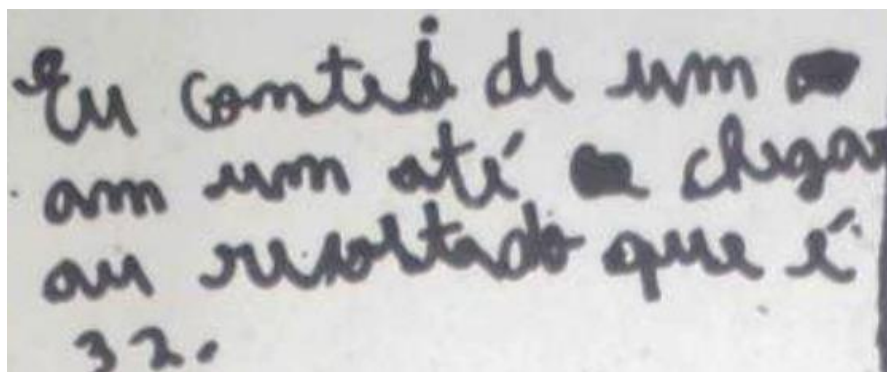 Eu contei de um
am um até chegar
au resoltado que é
32.